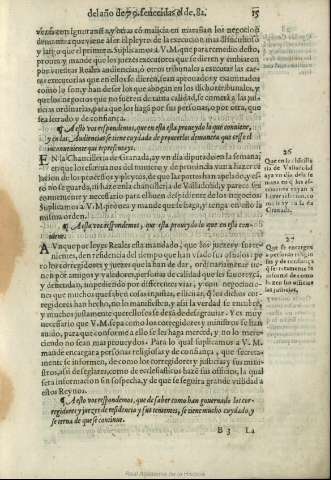 del año de 79. fenecidas el de, 82. 15
veces con ignorancia, y otras cō malicia en marañan los negocios de
manera que viene a ser el pleyto de la execucion mas dificultoso
y largo que el primero. Suplicamos a V. M. que para remedio desto,
prouea y mande que los juezes executores que se dieren y embiaren
por vuestras Reales audiencias, ò otros tribunales en casos de
que en ellos se dieren, sean aprouados y examinados
como lo son, y han de ser los que abogan en los dichos tribunales, y
que los negocios que no fueren de tanta calidad, se cometā a las justi
cias ordinarias, para que los hagā por sus personas, o por otra, que
sea letrado y de confiança.
¶ A esto vos respondemos, que en esta está proueydo lo que conuiene,
y en las Audiencias se tiene cuydado de proueerlas demanera que cesse el
inconueniente que representays.
EN la Chancilleria de Granada, ay vn dia diputado en la semana,
en que los escriuanos del numero y de prouincia van a hazer re
lacion de los procesos y pleytos, de que las partes han apelado, y es
to no se guarda, ni haze en la chancilleria de Valladolid, y parece ses
conueniente y necessario para el buen despediente de los negocios
Suplicamos a V. M. prouea y mande que se haga, y tenga en ello la
misma orden.
¶ A esto vos respondemos, que esta proueydo lo que en esto con-
uiene.
AVnque por leyes Reales esta mandado, que los juezes y sobre
uienen, den residencia del tiempo que han vsado sus oficios
los corregidores y juezes que la han de dar, ordinariamente tie
ne por amigos y valedores, personas de calidad que les fauorezcā,
y defiendan, impediendo por differentes vias, y con negociacio
nes que muchos que estan cosas injustas, e ilicitas, q̄ los dichos cor
regidores han hecho, no lo manifiesten, y assi la verdad se encubre,
y muchos justamente querellosos se dexā de desagrauiar. Y es muy
necessario que V. M. sepa como los corregidores y ministros se han
auido, para que conforme a ello se les haga merced, y no lo mere-
ciendo no sean mas proueydos. Para lo qual suplicamos a V. M.
mande encargar a personas religiosas y de confiança, que secreta
mente se informen, de como los corregidores y justicias y sus mi-
nistros, assi de seglares, como de ecclesiasticos hazē sus officios, la qual
sera informacion sin sospecha, y de que se seguira grande vtilidad a
estos Reynos.
¶ A esto vos respondemos, que de saber como han gouernado los cor-
regidores y juezes de residencia y sus tenientes, se tiene mucho cuydado, y
se terna de que se continue.
B 3 La
26
Que en la chācille
ria de Valladolid
aya vn dia de la se
mana en q̄ los es-
criuanos vayan a
hazer relacion, co
mo los ay en la de
Granada.
27
Que se encargue
a personas religio
sas y de confiança
q̄ secretamente se
informē de como
hazen sus officios
las justicias,
Real Academia de la Historia